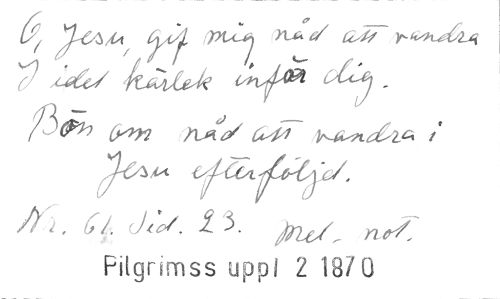 O, Jesu, gif mig nåd att vandra
I idel kärlek inför dig.
Bön om nåd att vandra i
Jesu efterföljd.
Nr. 61. Sid. 23. Mel. not.
Pilgrimss uppl 2 1870